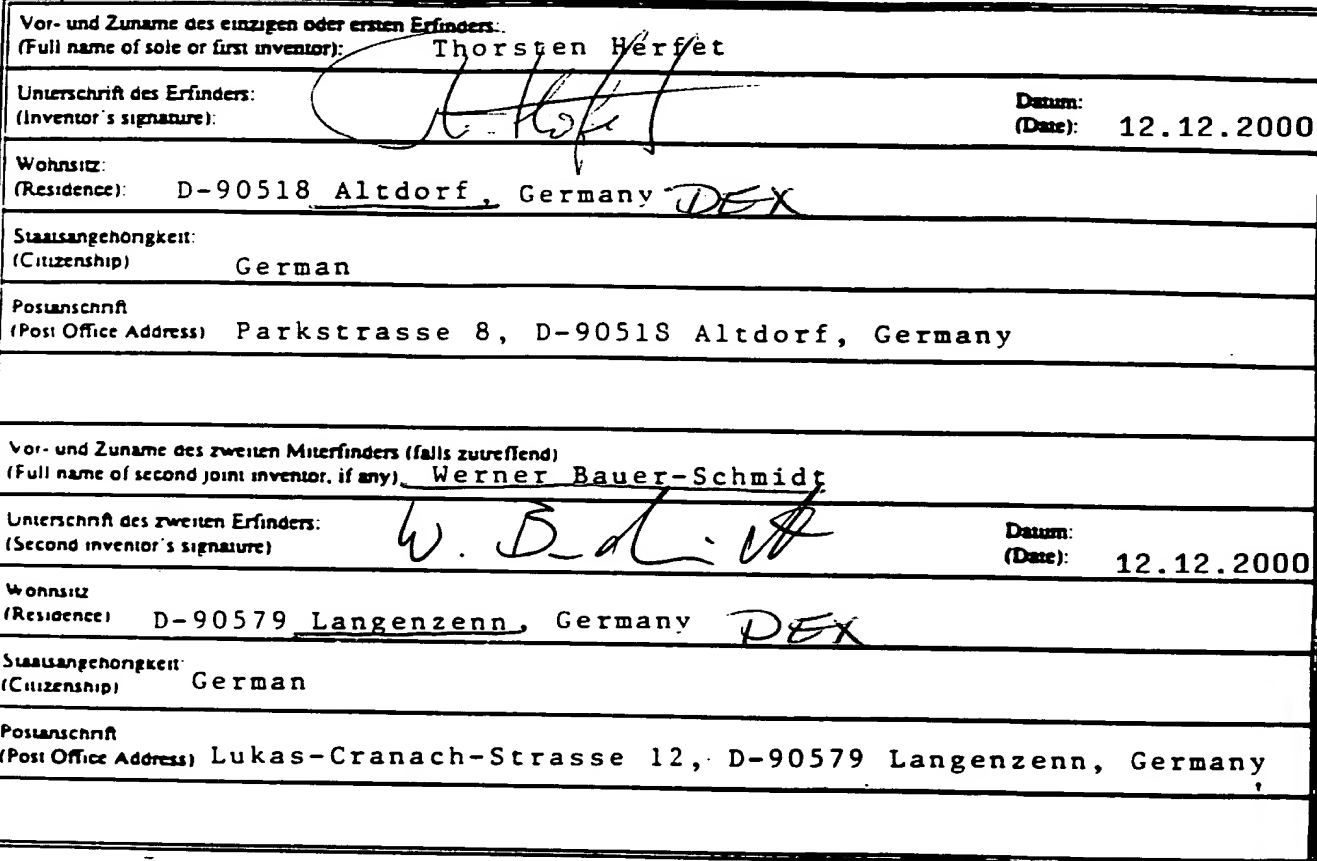 Vor- und Zuname des einzigen oder ersten Erfinders:
(Full name of sole or first inventor): Thorsten Herfet
Unterschrift des Erfinders:
(Inventor's signature):
Datum:
(Date): 12.12.2000
Wohnsitz:
(Residence): D-90518 Altdorf, Germany DEX
Staatsangehörigkeit:
(Citizenship) German
Postanschrift
(Post Office Address) Parkstrasse 8, D-90518 Altdorf, Germany
Vor- und Zuname des zweiten Miterfinders (falls zutreffend)
(Full name of second joint inventor, if any) Werner Bauer-Schmidt
Unterschrift des zweiten Erfinders:
(Second inventor's signature) W.
Datum:
(Date): 12.12.2000
Wohnsitz
(Residence) D-90579 Langenzenn, Germany DEX
Staatsangehörigkeit
(Citizenship) German
Postanschrift
(Post Office Address) Lukas-Cranach-Strasse 12, D-90579 Langenzenn, Germany